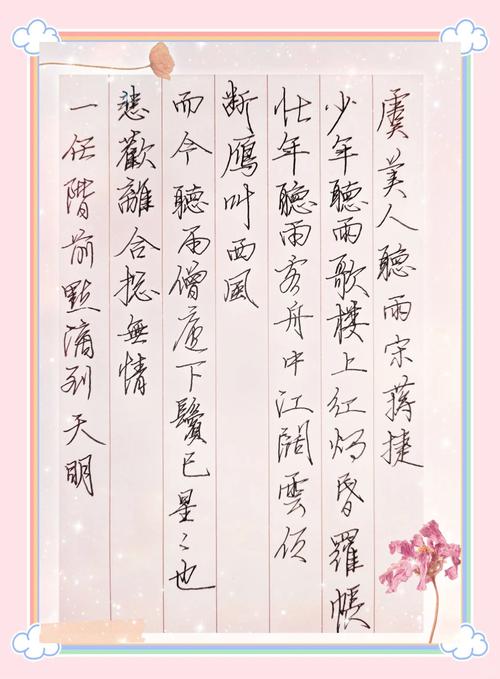 虞美人聽雨宋蔣捷
少年聽雨歌樓上红燭昏羅帳
壮年聽雨客舟中江闊雲低
断鴈叫西風
而今聽雨僧廬下鬢已星〻也
悲歡離合揔無情
一任階前點滴到天明